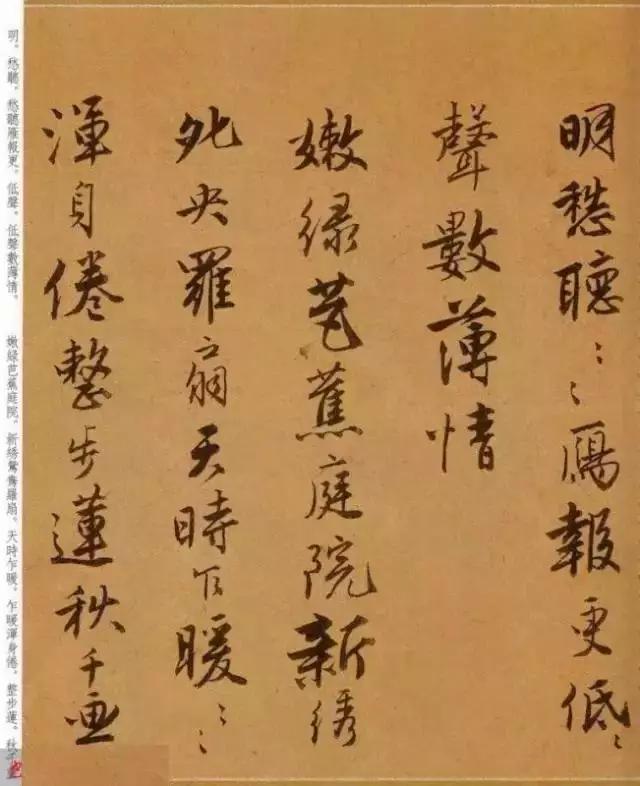 明愁聽〻〻鴈報更低〻
聲數薄情
嫩緑芭蕉庭院新綉
夗央羅扇天時乍暖〻〻
渾身倦整步蓮秋千画
明。愁聽。愁聽雁報更。低聲。低聲數薄情。　嫩緑芭蕉庭院。新綉鴛鴦羅扇。天時乍暖。乍暖渾身倦。整步蓮。秋千